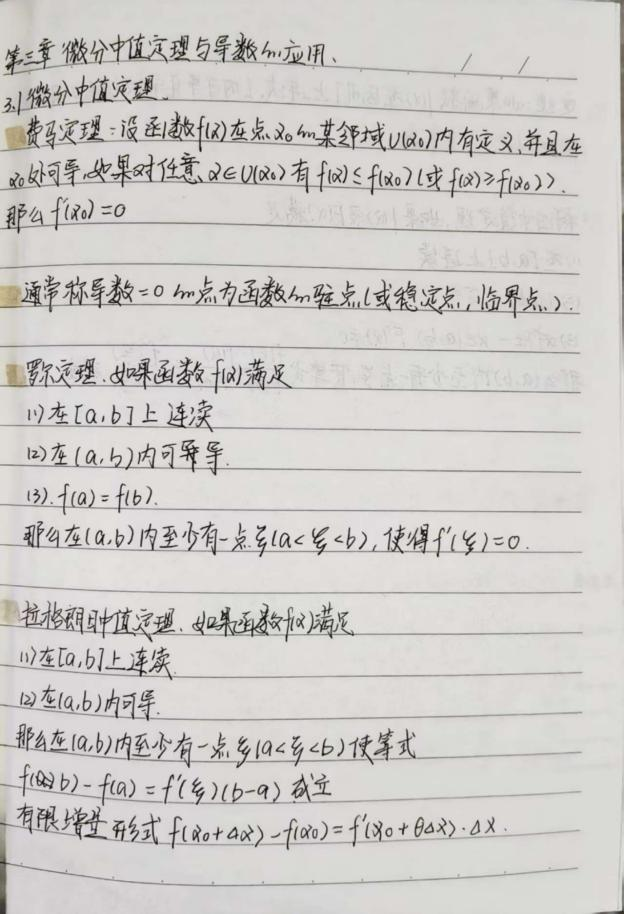 第三章 微分中值定理与导数的应用.
3.1 微分中值定理.
费马定理:设函数f(x)在点x₀的某邻域U(x₀)内有定义,并且在
x₀处可导,如果对任意x∈U(x₀)有f(x)≤f(x₀)(或f(x)≥f(x₀)).
那么f'(x₀)=0
通常称导数=0的点为函数的驻点(或稳定点,临界点).
罗尔定理.如果函数f(x)满足
(1)在[a,b]上连续
(2)在(a,b)内可导.
(3).f(a)=f(b).
那么在(a,b)内至少有一点ξ(a<ξ<b),使得f'(ξ)=0.
拉格朗日中值定理.如果函数f(x)满足
(1)在[a,b]上连续
(2)在(a,b)内可导.
那么在(a,b)内至少有一点ξ(a<ξ<b)使等式
f(b)-f(a)=f'(ξ)(b-a)成立
有限增量形式 f(x₀+Δx)-f(x₀)=f'(x₀+θΔx)·Δx.